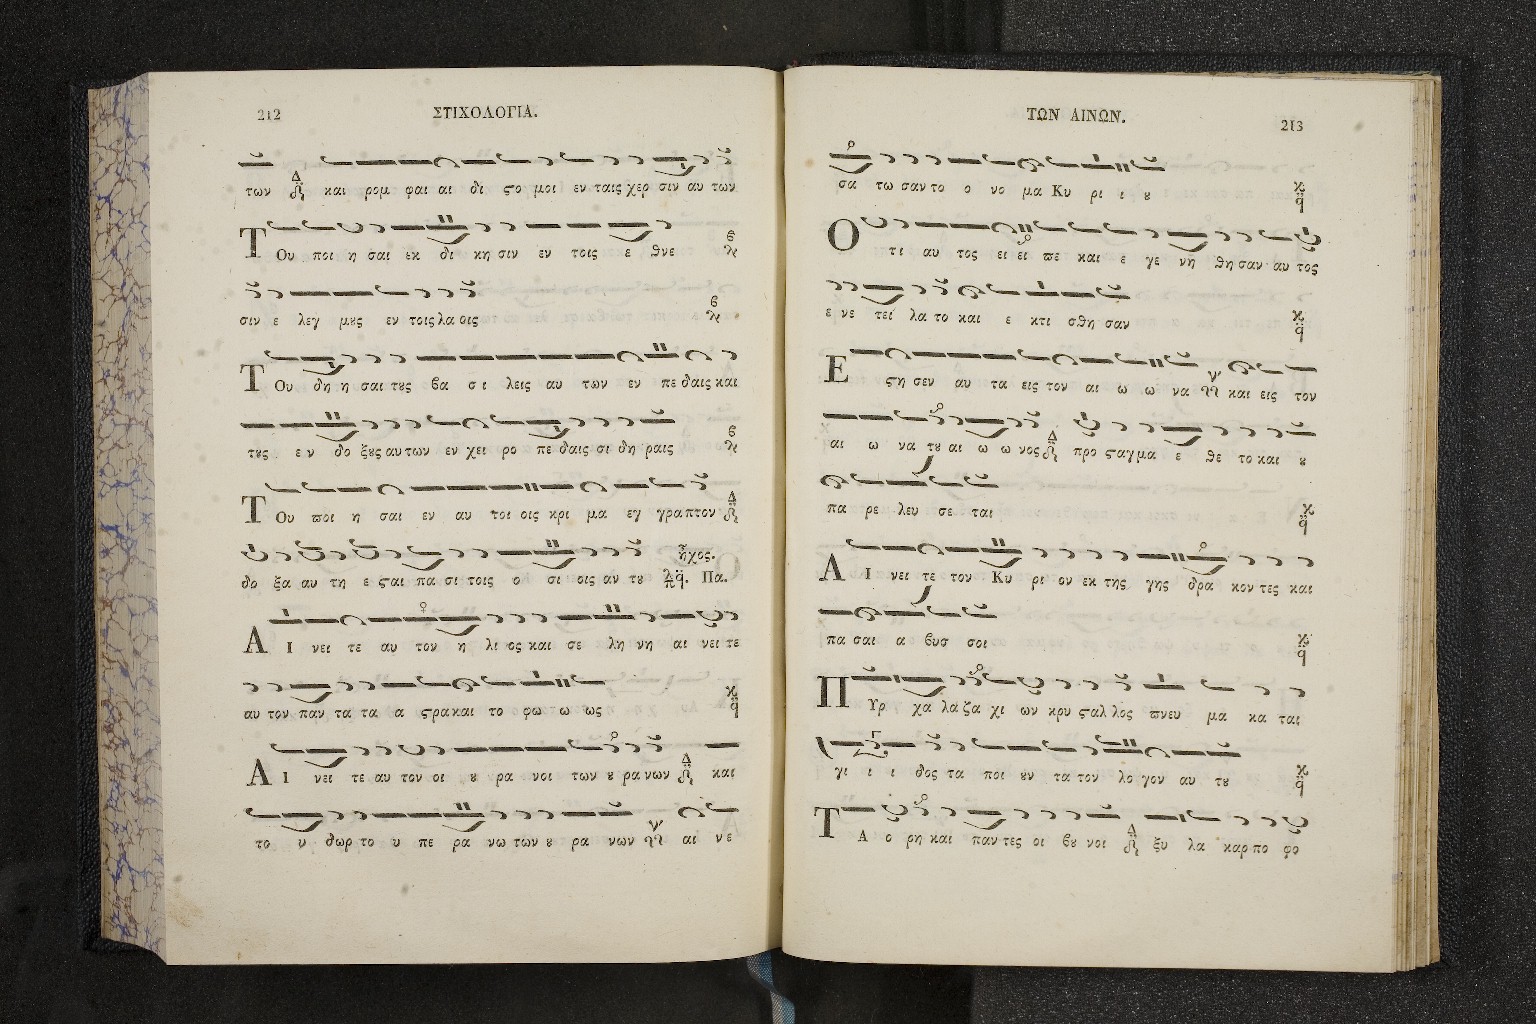 212 ΣΤΙΧΟΛΟΓΙΑ.
των Δ και ρομ φαι αι δι ςο μοι εν ταις χερ σιν αυ των
Τ Ου ποι η σαι εκ δι κη σιν εν τοις ε θνε
σιν ε λεγ μȣς εν τοις λα οις
Τ Ου δη η σαι τȣς βα σι λεις αυ των εν πε δαις και
τȣς εν δο ξȣς αυ των εν χει ρο πε δαις σι δη ραις
Τ Ου ποι η σαι εν αυ τοι οις κρι μα εγ γρα πτον Δ
δο ξα αυ τη ε ςαι πα σι τοις ο σι οις αν τȣ ἦχος. Πα.
Α Ι νει τε αυ τον η λι ος και σε λη νη αι νει τε
αυ τον παν τα τα α ςρα και το φω ω ως
Α Ι νει τε αυ τον οι ȣ ρα νοι των ȣ ρα νων Δ και
το υ δωρ το υ πε ρα νω των ȣ ρα νων αι νε
ΤΩΝ ΑΙΝΩΝ. 213
σα τω σαν το ο νο μα Κυ ρι ι ȣ
Ο τι αυ τος ει ει πε και ε γε νη θη σαν αυ τος
ε νε τει λα το και ε κτι σθη σαν
Ε ςη σεν αυ τα εις τον αι ω ω να και εις τον
αι ω να τȣ αι ω ω νος Δ προ ςαγμα ε θε το και ȣ
πα ρε λευ σε ται
Α Ι νει τε τον Κυ ρι ον εκ της γης δρα κον τες και
πα σαι α βυσ σοι
Π Υρ χα λα ζα χι ων κρυ ςαλ λος πνευ μα κα ται
γι ι ι δος τα ποι ȣν τα τον λο γον αυ τȣ
Τ Α ο ρη και παν τες οι βȣ νοι Δ ξυ λα καρ πο φο